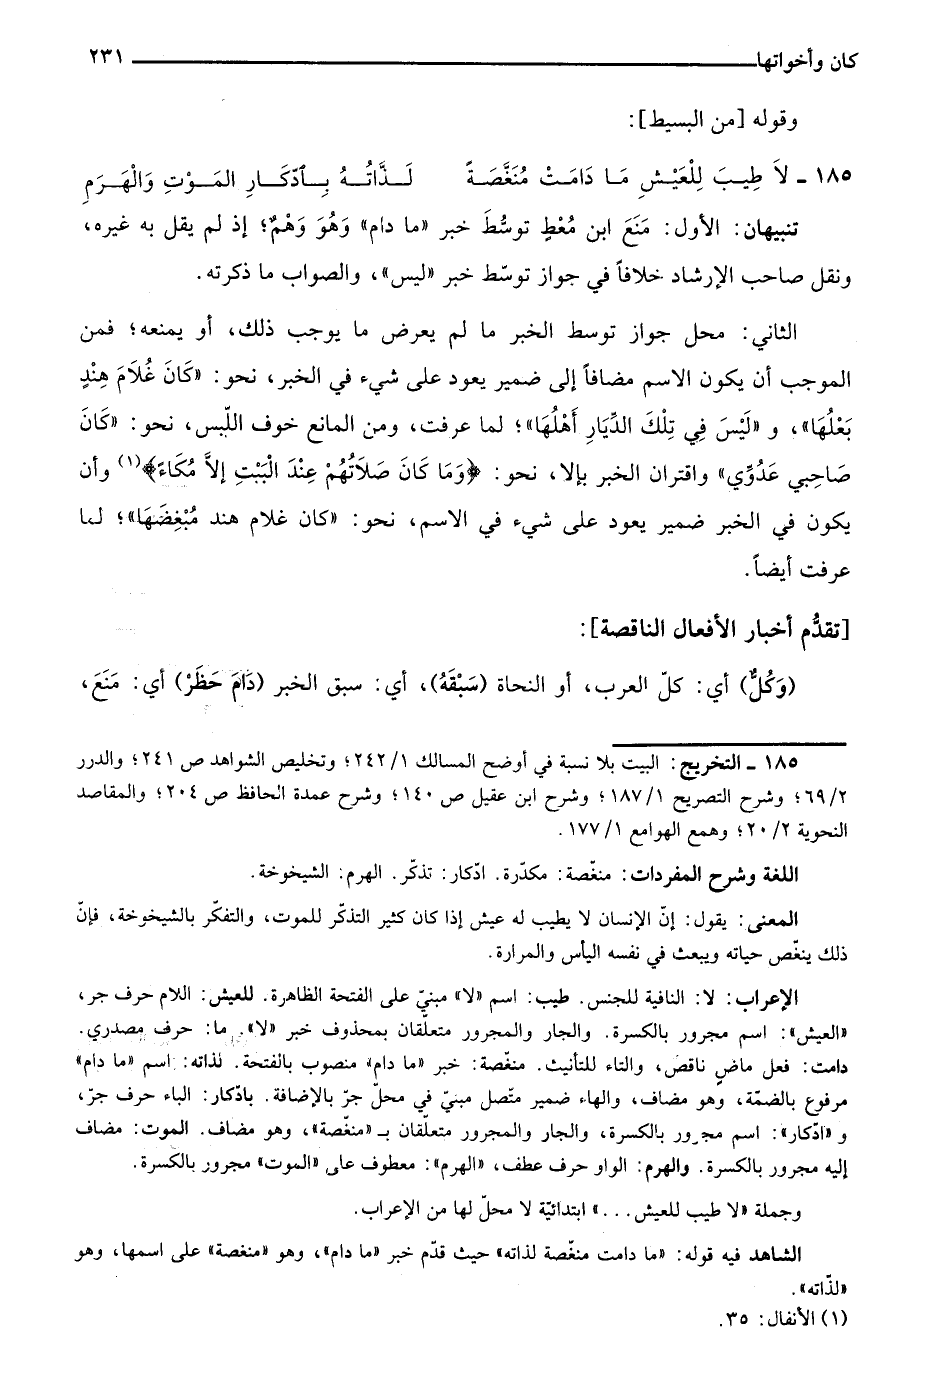 كان وأخواتها ٢٣١
وقوله [من البسيط]:
١٨٥ ـ لاَ طِيبَ لِلْعَيْشِ مَا دَامَتْ مُنَغَّصَةً لَذَّاتُهُ بِادِّكَارِ المَوْتِ وَالْهَرَمِ
تنبيهان: الأول: مَنَعَ ابن مُعْطٍ توسُّطَ خبر «ما دام» وَهُوَ وَهْمٌ؛ إذ لم يقل به غيره،
ونقل صاحب الإرشاد خلافاً في جواز توسّط خبر «ليس»، والصواب ما ذكرته.
الثاني: محل جواز توسط الخبر ما لم يعرض ما يوجب ذلك، أو يمنعه؛ فمن
الموجب أن يكون الاسم مضافاً إلى ضمير يعود على شيء في الخبر، نحو: «كَانَ غُلَامَ هِنْدٍ
بَعْلُهَا»، و «لَيْسَ فِي تِلْكَ الدِّيَارِ أَهْلُهَا»؛ لما عرفت، ومن المانع خوف اللّبس، نحو: «كَانَ
صَاحِبي عَدُوِّي» واقتران الخبر بإلا، نحو: ﴿وَمَا كَانَ صَلَاتُهُمْ عِنْدَ الْبَيْتِ إلاَّ مُكَاءً﴾(١) وأن
يكون في الخبر ضمير يعود على شيء في الاسم، نحو: «كان غلام هند مُبْغِضَهَا»؛ لما
عرفت أيضاً.
[تقدُّم أخبار الأفعال الناقصة]:
(وَكُلٌّ) أي: كلّ العرب، أو النحاة (سَبْقَهُ)، أي: سبق الخبر (دَامَ حَظَرْ) أي: مَنَعَ،
١٨٥ ـ التخريج: البيت بلا نسبة في أوضح المسالك ١/ ٢٤٢؛ وتخليص الشواهد ص ٢٤١؛ والدرر
٢/ ٦٩؛ وشرح التصريح ١/ ١٨٧؛ وشرح ابن عقيل ص ١٤٠؛ وشرح عمدة الحافظ ص ٢٠٤؛ والمقاصد
النحوية ٢/ ٢٠؛ وهمع الهوامع ١/ ١٧٧.
اللغة وشرح المفردات: منغّصة: مكدّرة. ادّكار: تذكّر. الهرم: الشيخوخة.
المعنى: يقول: إنّ الإنسان لا يطيب له عيش إذا كان كثير التذكّر للموت، والتفكّر بالشيخوخة، فإنّ
ذلك ينغّص حياته ويبعث في نفسه اليأس والمرارة.
الإعراب: لا: النافية للجنس. طيب: اسم «لا» مبنيّ على الفتحة الظاهرة. للعيش: اللام حرف جر،
«العيش»: اسم مجرور بالكسرة. والجار والمجرور متعلّقان بمحذوف خبر «لا». ما: حرف مصدري.
دامت: فعل ماضٍ ناقص، والتاء للتأنيث. منغّصة: خبر «ما دام» منصوب بالفتحة. لذاته: اسم «ما دام»
مرفوع بالضمّة، وهو مضاف، والهاء ضمير متّصل مبنيّ في محلّ جرّ بالإضافة. بادّكار: الباء حرف جرّ،
و «ادّكار»: اسم مجرور بالكسرة، والجار والمجرور متعلّقان بـ «منغّصة»، وهو مضاف. الموت: مضاف
إليه مجرور بالكسرة. والهرم: الواو حرف عطف، «الهرم»: معطوف على «الموت» مجرور بالكسرة.
وجملة «لا طيب للعيش...» ابتدائيّة لا محلّ لها من الإعراب.
الشاهد فيه قوله: «ما دامت منغّصة لذاته» حيث قدّم خبر «ما دام»، وهو «منغصة» على اسمها، وهو
«لذّاته».
(١) الأنفال: ٣٥.